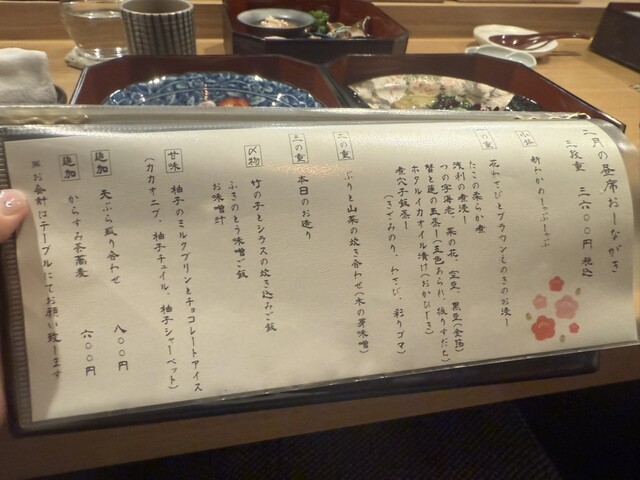 二月の昼席おしながき
三段重 三六〇〇円 税込
小鉢 新わかめしゃぶしゃぶ
一の重 花わさびとブラウンえのきのお浸し
たこの柔らか煮
浅利の煮浸し
つの字海老、菜の花、空豆、黒豆(金箔)
蟹と蓮の真茶(五色あられ、振りすだち)
ホタルイカオイル漬け(おかひじき)
煮穴子飯蒸し
(きざみのり、わさび、彩りゴマ)
二の重 ぶりと山菜の炊き合わせ(木の芽味噌)
三の重 本日のお造り
〆物 竹の子とシラスの炊き込みご飯
ふきのとう味噌ご飯
お味噌汁
甘味 柚子のミルクプリンとチョコレートアイス
(カカオニブ、柚子チュイル、柚子シャーベット)
追加 天ぷら盛り合わせ 八〇〇円
追加 からすみ茶蕎麦 六〇〇円
※お会計はテーブルにてお願い致します